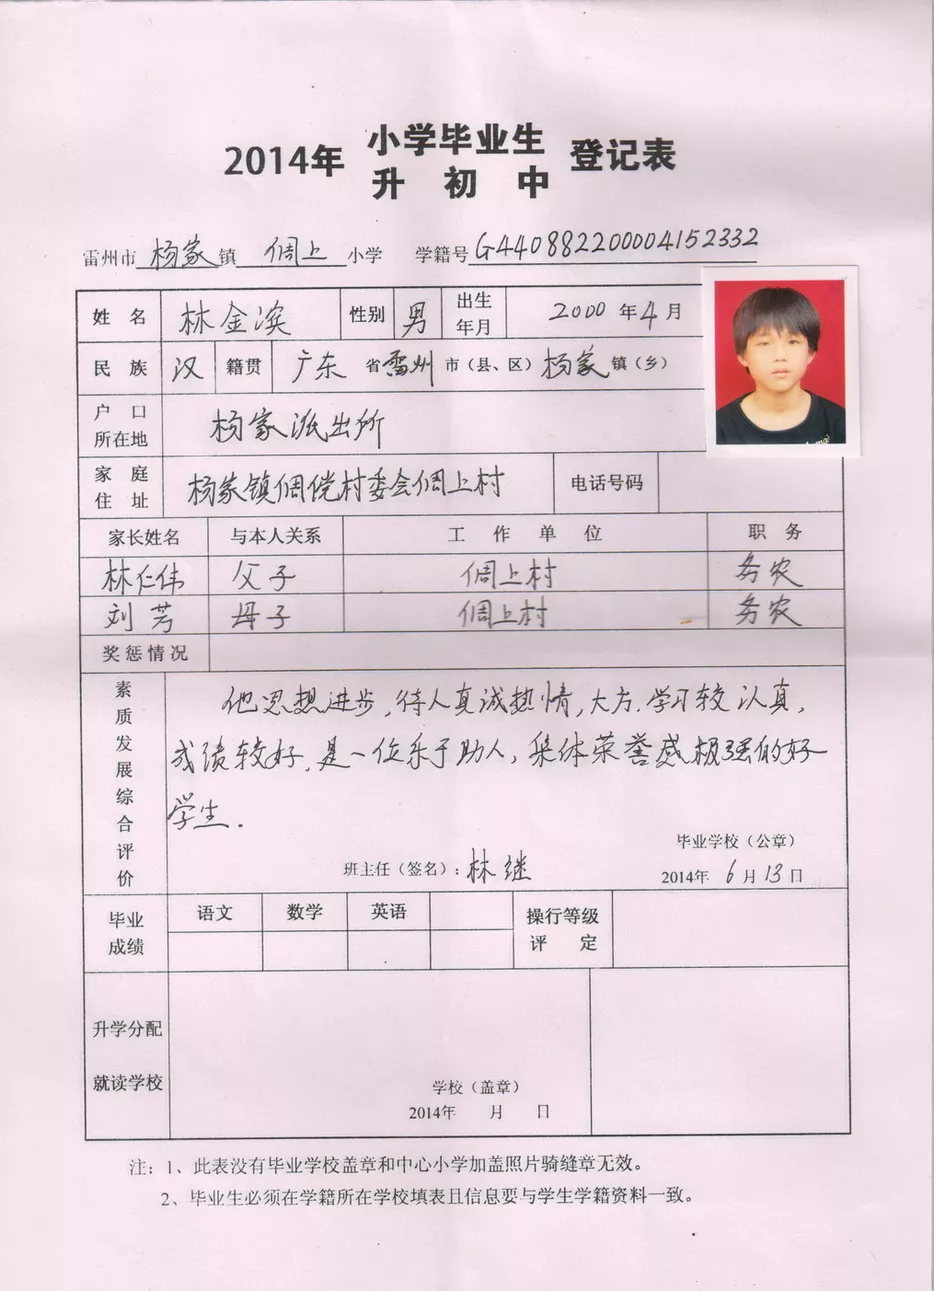 2014年 小学毕业生 登记表
升初中
雷州市杨家镇倜上小学 学籍号G440882200004152332
姓名 林金滨 性别 男 出生年月 2000年4月
民族 汉 籍贯 广东省雷州市(县、区)杨家镇(乡)
户口所在地 杨家派出所
家庭住址 杨家镇倜傥村委会倜上村 电话号码
家长姓名 与本人关系 工作单位 职务
林仁伟 父子 倜上村 务农
刘芳 母子 倜上村 务农
奖惩情况
素质发展综合评价
他思想进步,待人真诚热情,大方.学习较认真,
成绩较好,是一位乐于助人,集体荣誉感极强的好
学生.
毕业学校(公章)
班主任(签名):林继 2014年6月13日
毕业成绩 语文 数学 英语 操行等级评定
升学分配
就读学校
学校(盖章)
2014年 月 日
注:1、此表没有毕业学校盖章和中心小学加盖照片骑缝章无效。
2、毕业生必须在学籍所在学校填表且信息要与学生学籍资料一致。